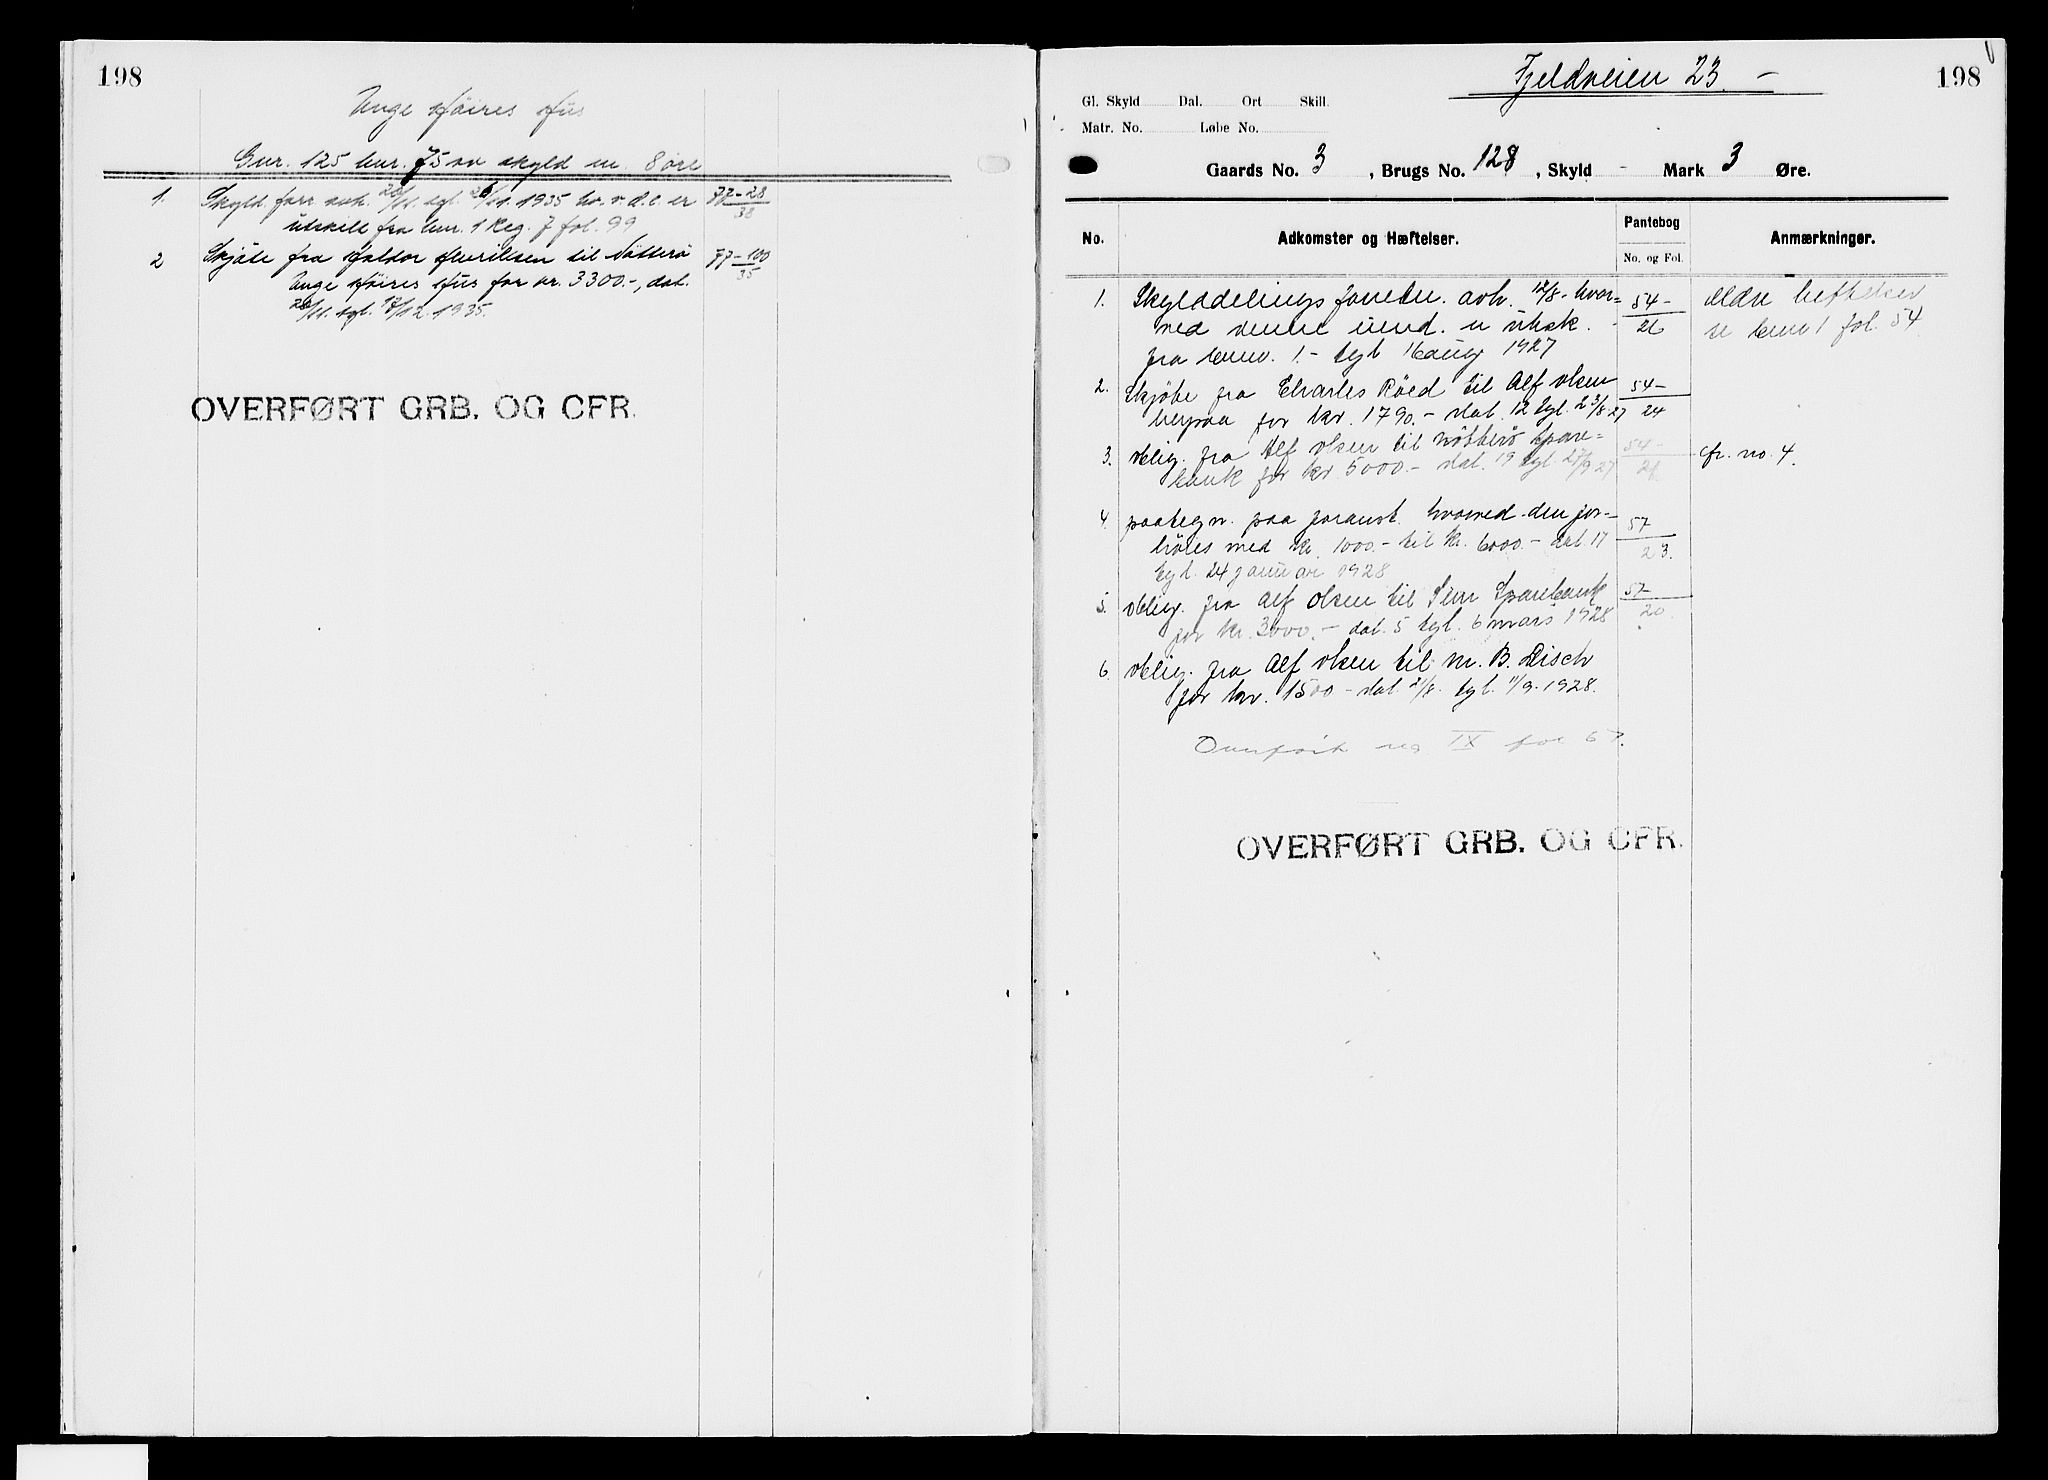 198
Unge Høires Hus
Gnr. 125 bnr. 75 av skyld m. 8 øre
1. Skyld forr avh. 20/11. tgl. 26/11. 1935 hv. v. d. e. er 77-28/38
utskilt fra bnr. 1 Reg. 7 fol. 99
2 Skjøte fra Haldor Henriksen til Nøtterø 77-100/35
Unge Høires Hus for kr. 3300.-, dat.
26/11. tgl. 12/12. 1935.
OVERFØRT GRB. OG CFR.
Fjeldveien 23. —
198
Gl. Skyld Dal. Ort Skill.
Matr. No. Løbe No.
Gaards No. 3, Brugs No. 128, Skyld - Mark 3 Øre.
No. Adkomster og Hæftelser. Pantebog No. og Fol. Anmærkninger.
1. Skylddelingsforretn. avh. 12/8 - hvor= 54-/26 Ældre heftelser
ved denne eiend. er utsk. se bnr 1 fol. 54
fra brno. 1. - tgl 16 aug 1927
2. Skjøte fra Charles Röed til Alf Olsen 54-/24
herpaa for kr. 1790.- dat. 12 tgl. 23/8 27
3. Oblig. fra Alf Olsen til Nøtterö Spare= 54- cfr. no. 4.
bank for kr 5000.- dat. 19 tgl. 27/9 27
4. paategn. paa foranst. hvorved den for- 57/23.
höies med kr. 1000.- til kr. 6000.- dat. 17
tgl. 24 januar 1928
5. Oblig. fra Alf Olsen til Sem Sparebank 57-/20.
for kr. 3000.- dat. 5 tgl. 6 mars 1928
6. Oblig. fra Alf Olsen til M. B. Disch
for kr. 1500 - dat. 21/8. tgl. 11/9. 1928.
Overført reg IX fol 67.
OVERFØRT GRB. OG CFR.